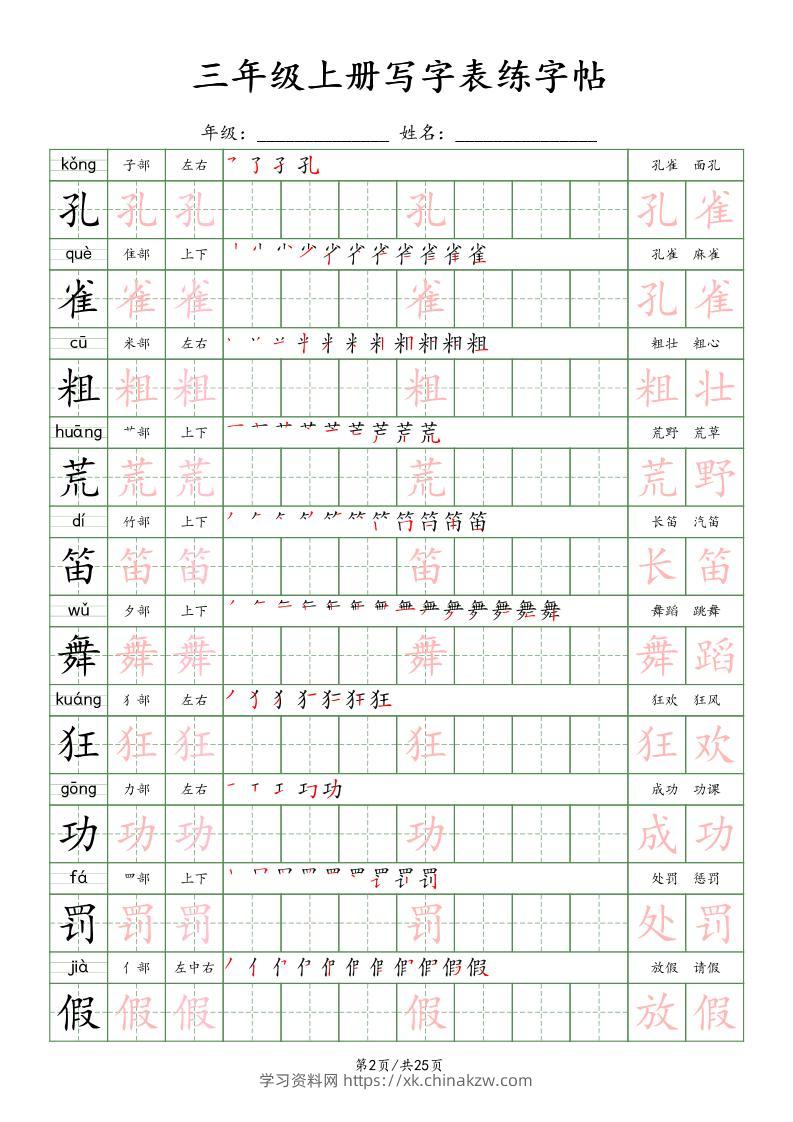 三年级上册写字表练字帖
年级：______________ 姓名：_______________
kǒng 子部 左右 孔 孔雀 面孔
孔 孔 孔 孔 孔 雀
què 隹部 上下 雀 孔雀 麻雀
雀 雀 雀 雀 孔 雀
cū 米部 左右 粗 粗壮 粗心
粗 粗 粗 粗 粗 壮
huāng 艹部 上下 荒 荒野 荒草
荒 荒 荒 荒 荒 野
dí 竹部 上下 笛 长笛 汽笛
笛 笛 笛 笛 长 笛
wǔ 夕部 上下 舞 舞蹈 跳舞
舞 舞 舞 舞 舞 蹈
kuáng 犭部 左右 狂 狂欢 狂风
狂 狂 狂 狂 狂 欢
gōng 力部 左右 功 成功 功课
功 功 功 功 成 功
fá 罒部 上下 罚 处罚 惩罚
罚 罚 罚 罚 处 罚
jià 亻部 左中右 假 放假 请假
假 假 假 假 放 假
第2页/共25页
学习资料网 https://xk.chinakzw.com